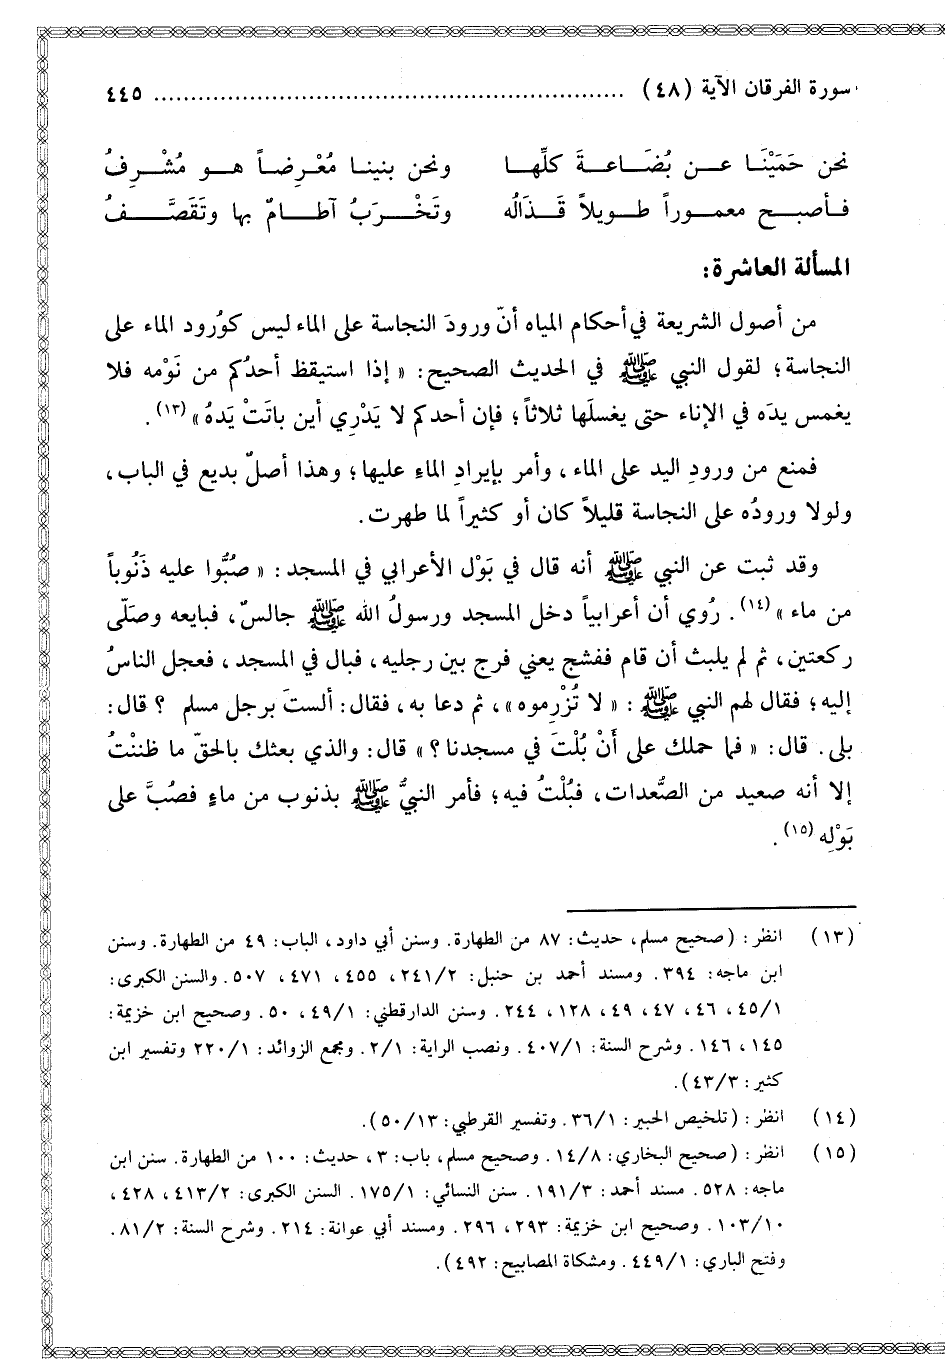 سورة الفرقان الآية (٤٨) ................................................................ ٤٤٥
نحن حَمَيْنَا عن بُضَاعةَ كلِّها ونحن بنينا مُعْرِضاً هو مُشْرِفُ
فأصبح معموراً طويلاً قَذَالُه وتَخْرَبُ آطامٌ بها وتَقَصَّفُ
المسألة العاشرة:
من أصول الشريعة في أحكام المياه أنّ ورودَ النجاسة على الماء ليس كوُرود الماء على
النجاسة؛ لقول النبي ﷺ في الحديث الصحيح: « إذا استيقظ أحدُكم من نَوْمه فلا
يغمس يدَه في الإناء حتى يغسلَها ثلاثاً؛ فإن أحدكم لا يَدْرِي أين باتَتْ يَدهُ» (١٣).
فمنع من ورودِ اليد على الماء، وأمر بإيرادِ الماءِ عليها؛ وهذا أصلٌ بديع في الباب،
ولولا ورودُه على النجاسة قليلاً كان أو كثيراً لما طهرت.
وقد ثبت عن النبي ﷺ أنه قال في بَوْل الأعرابي في المسجد: « صُبُّوا عليه ذَنُوباً
من ماء » (١٤). رُوي أن أعرابياً دخل المسجد ورسولُ الله ﷺ جالسٌ، فبايعه وصَلّى
ركعتين، ثم لم يلبث أن قام ففشج يعني فرج بين رجليه، فبال في المسجد، فعجل الناسُ
إليه؛ فقال لهم النبي ﷺ: « لا تُزْرِموه»، ثم دعا به، فقال: ألستَ برجل مسلم ؟ قال:
بلى. قال: « فما حملك على أَنْ بُلْتَ في مسجدنا؟ » قال: والذي بعثك بالحقّ ما ظننْتُ
إلا أنه صعيد من الصُّعدات، فبُلْتُ فيه؛ فأمر النبيُّ ﷺ بذنوب من ماءٍ فصُبَّ على
بَوْلِه (١٥).
(١٣) انظر: (صحيح مسلم، حديث: ٨٧ من الطهارة. وسنن أبي داود، الباب: ٤٩ من الطهارة. وسنن
ابن ماجه: ٣٩٤. ومسند أحمد بن حنبل: ٢٤١/٢، ٤٥٥، ٤٧١، ٥٠٧. والسنن الكبرى:
٤٥/١، ٤٦، ٤٧، ٤٩، ١٢٨، ٢٤٤. وسنن الدارقطني: ٤٩/١، ٥٠. وصحيح ابن خزيمة:
١٤٥، ١٤٦. وشرح السنة: ٤٠٧/١. ونصب الراية: ٢/١. ومجمع الزوائد: ٢٢٠/١ وتفسير ابن
كثير: ٤٣/٣).
(١٤) انظر: (تلخيص الحبير: ٣٦/١. وتفسير القرطبي: ٥٠/١٣).
(١٥) انظر: (صحيح البخاري: ١٤/٨. وصحيح مسلم، باب: ٣، حديث: ١٠٠ من الطهارة. سنن ابن
ماجه: ٥٢٨. مسند أحمد: ١٩١/٣. سنن النسائي: ١٧٥/١. السنن الكبرى: ٤١٣/٢، ٤٢٨،
١٠٣/١٠. وصحيح ابن خزيمة: ٢٩٣، ٢٩٦. ومسند أبي عوانة: ٢١٤. وشرح السنة: ٨١/٢.
وفتح الباري: ٤٤٩/١. ومشكاة المصابيح: ٤٩٢).